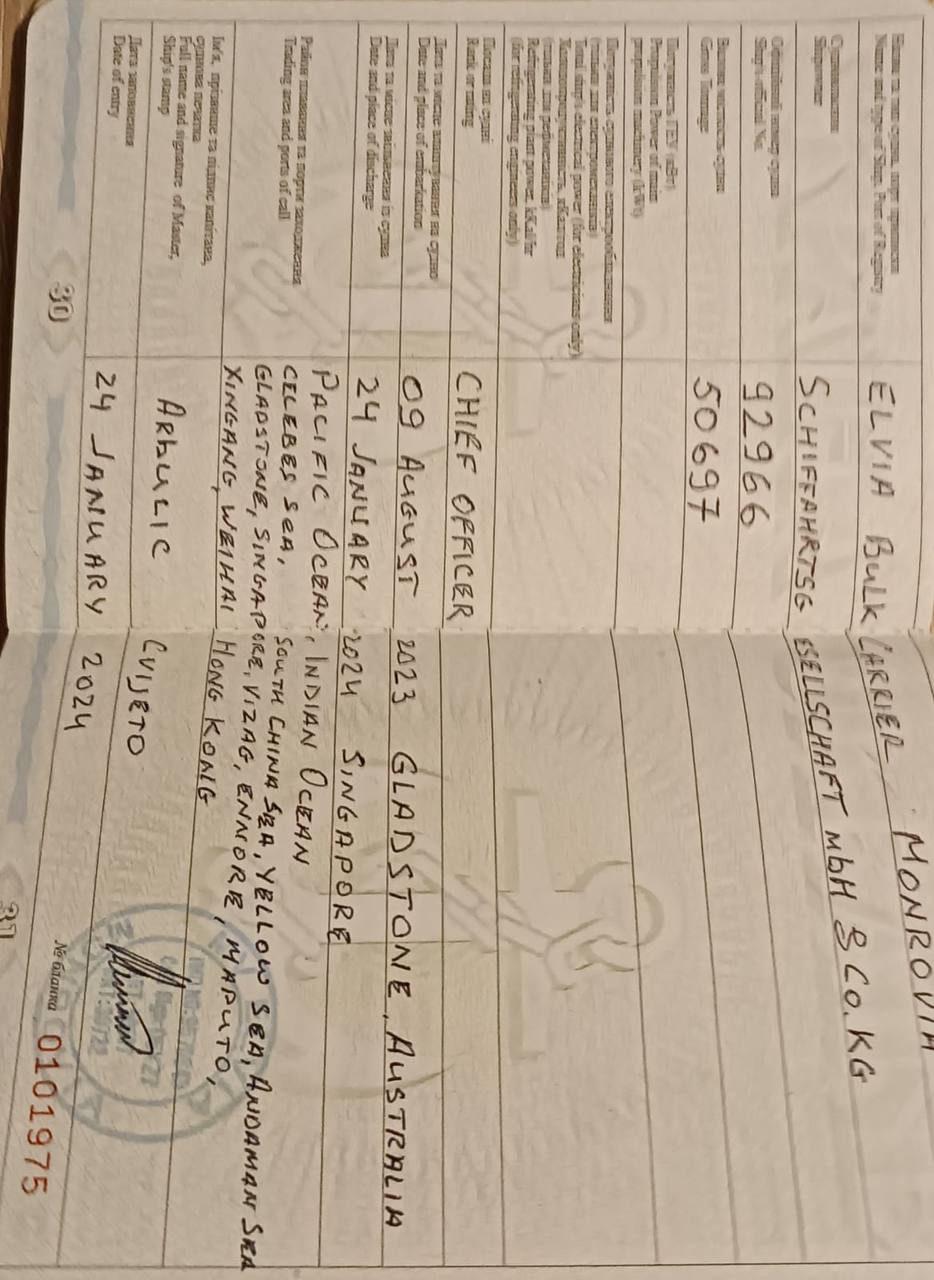 Назва та тип судна, порт приписки
Name and type of Ship, Port of Registry
ELVIA BULK CARRIER MONROVIA
Судновласник
Shipowner
SCHIFFAHRTSGESELLSCHAFT MBH & CO. KG
Офіційний номер судна
Ship's official No.
92966
Валова місткість судна
Gross Tonnage
50697
Потужність ГЕУ (кВт)
Propulsion Power of main
propulsion machinery (kWt)
Потужність суднового електрообладнання
(тільки для електромеханіків)
Total ship's electrical power (for electricians only)
Холодопродуктивність, кКал/год
(тільки для рефмеханіків)
Refrigerating plant power, kKal/hr
(for refrigerating engineers only)
Посада на судні
Rank or rating
CHIEF OFFICER
Дата та місце влаштування на судно
Date and place of embarkation
09 AUGUST 2023 GLADSTONE, AUSTRALIA
Дата та місце звільнення із судна
Date and place of discharge
24 JANUARY 2024 SINGAPORE
Район плавання та порти заходження
Trading area and ports of call
PACIFIC OCEAN, INDIAN OCEAN
CELEBES SEA, SOUTH CHINA SEA, YELLOW SEA, ANDAMAN SEA
GLADSTONE, SINGAPORE, VIZAG, ENNORE, MAPUTO,
XINGANG, WEIHAI HONG KONG
Ім'я, прізвище та підпис капітана,
суднова печатка
Full name and signature of Master,
Ship's stamp
ARBULIC CVIJETO
Дата заповнення
Date of entry
24 JANUARY 2024
30
№ бланка 0101975
31